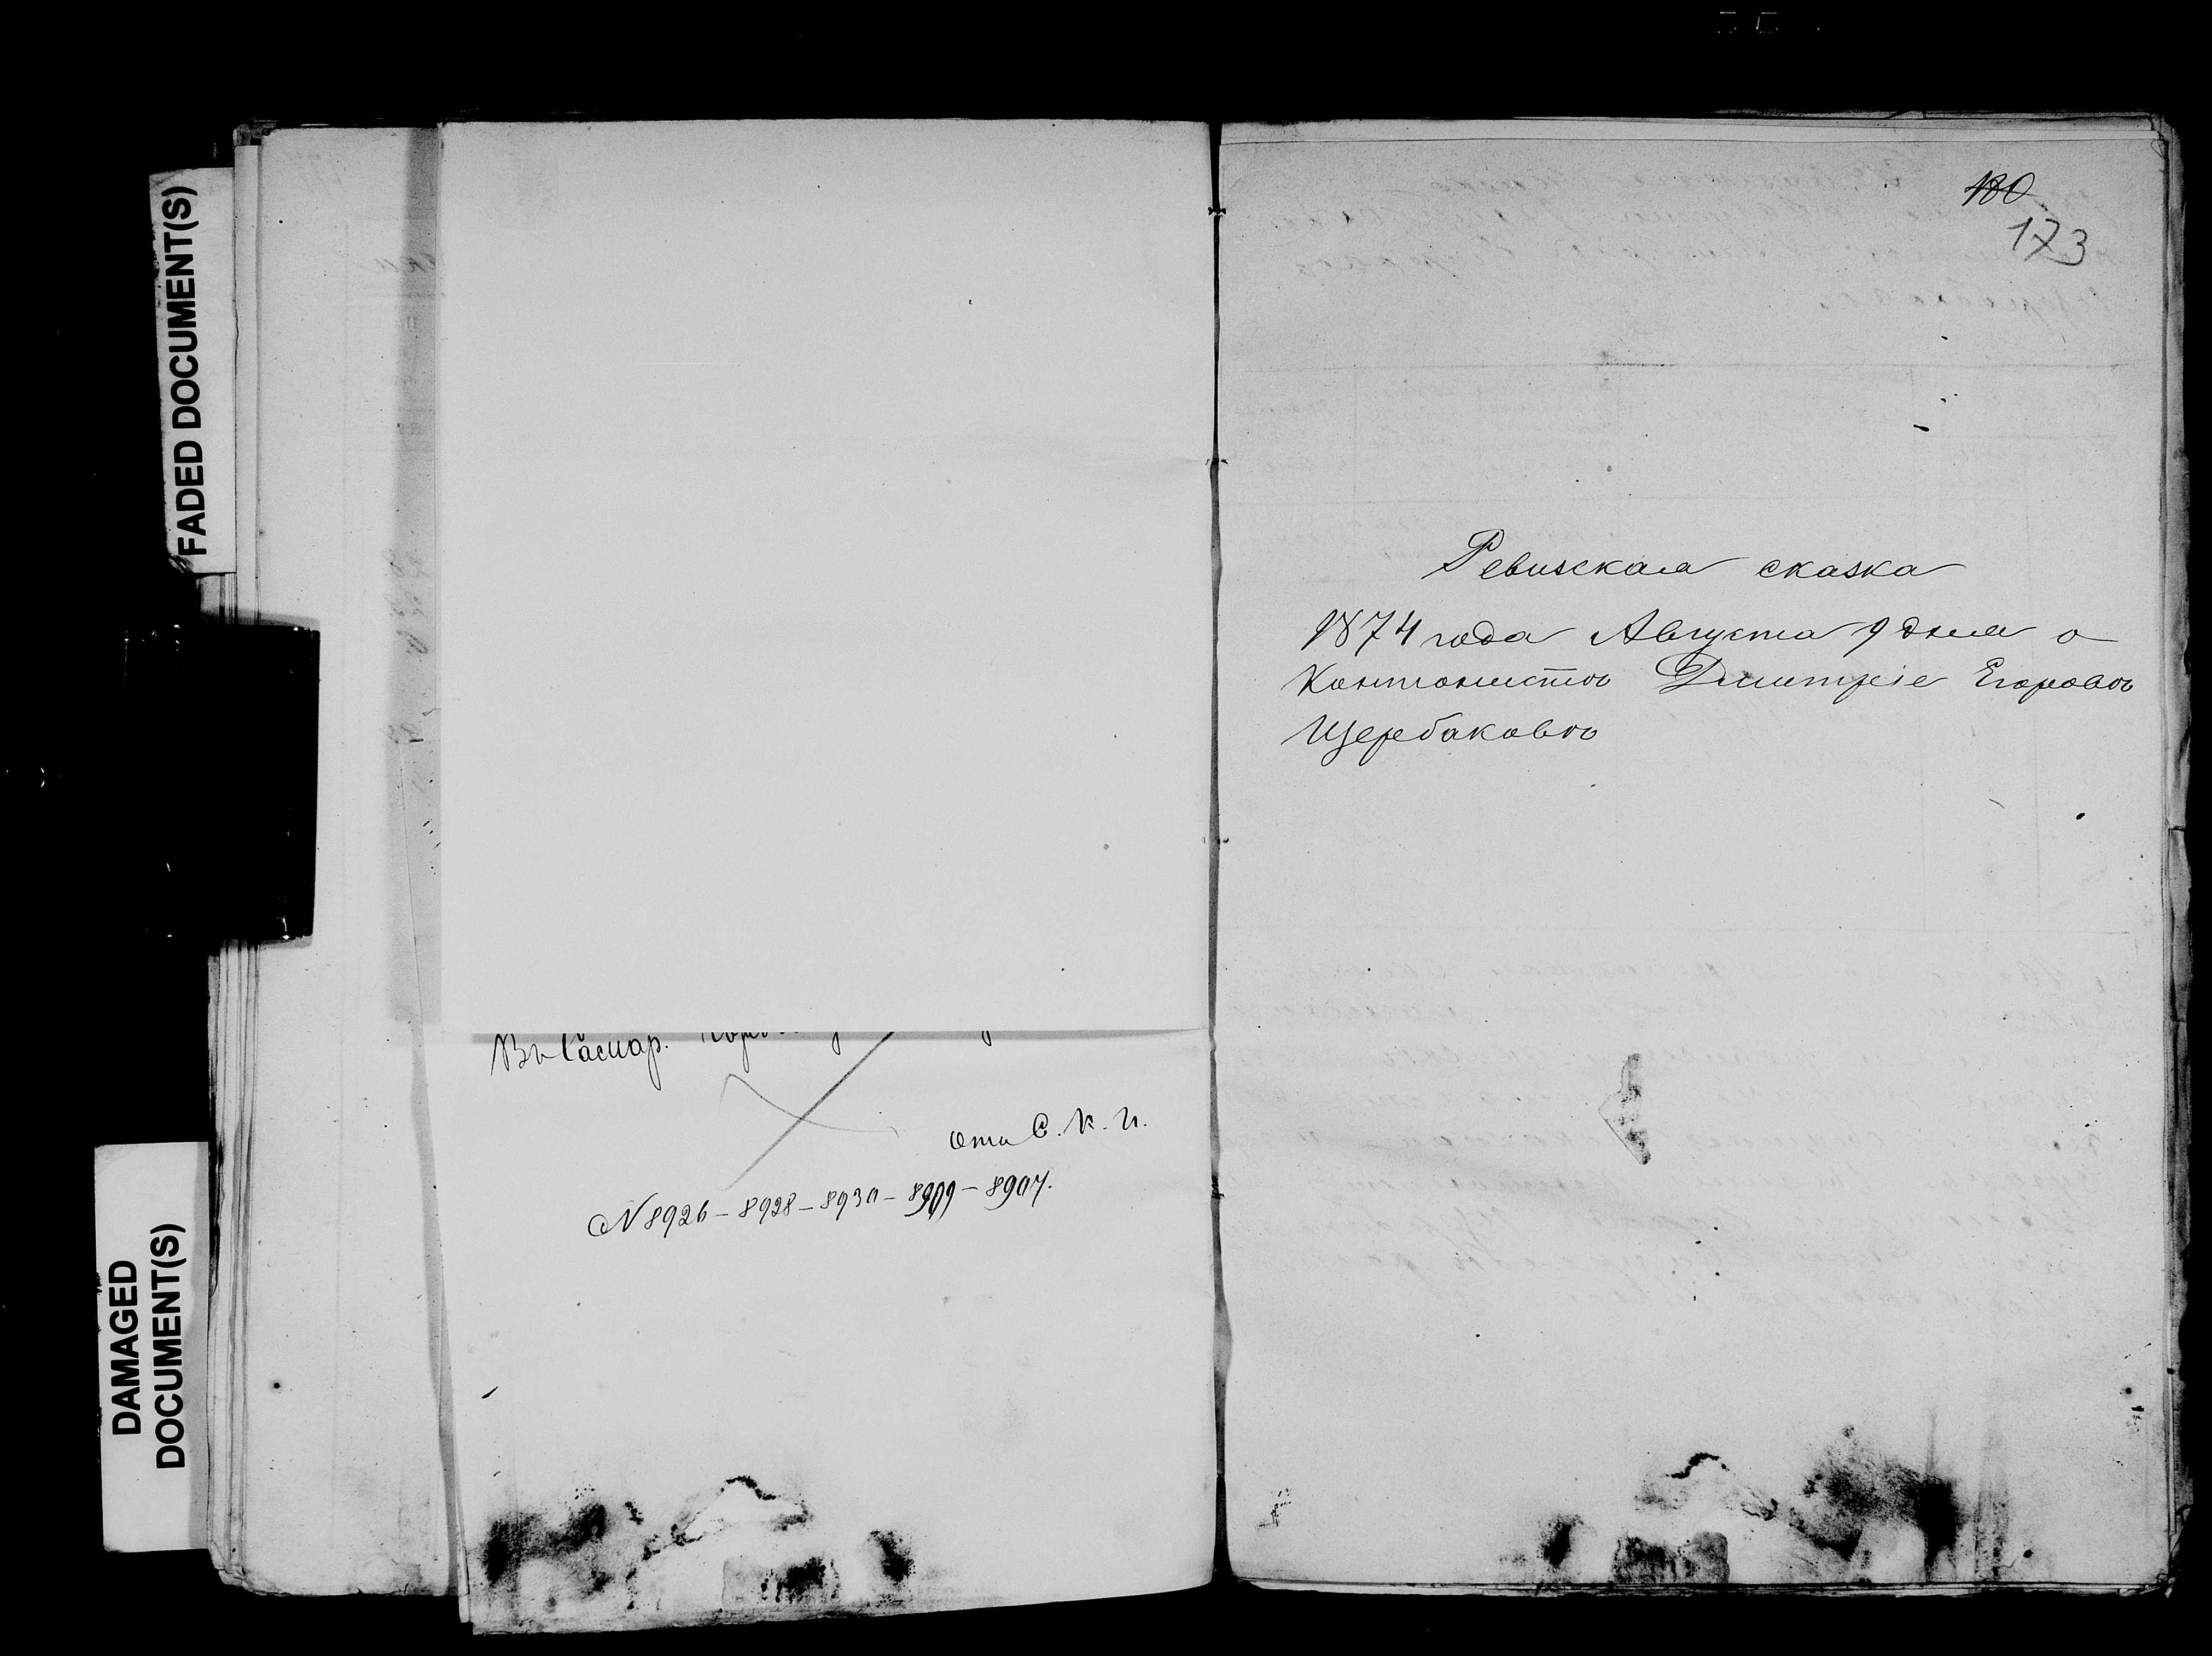 FADED DOCUMENT(S)
DAMAGED
DOCUMENT(S)
Въ Самар.
отъ С. К. И.
N 8926 – 8928 – 8930 – 8909 – 8907.
180
173
Ревизская сказка
1874 года Августа 9 дня о
Кантонистѣ Дмитріе Егоровѣ
Щербаковѣ